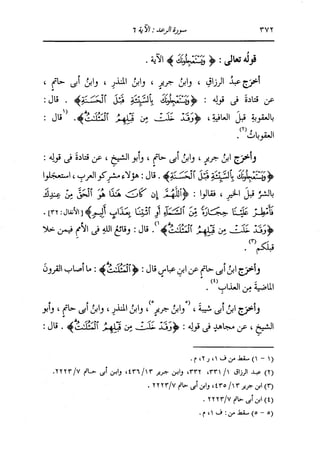 ٣٧٢ سورة الرعد : الآية ٦
قولُه تعالى : ﴿ وَيَسْتَعْجِلُونَكَ ﴾ الآية .
أخرَج عبدُ الرزاقِ ، وابنُ جريرٍ ، وابنُ المنذرِ ، وابنُ أبى حاتمٍ ،
عن قتادةَ فى قولِه : ﴿ وَيَسْتَعْجِلُونَكَ بِالسَّيِّئَةِ قَبْلَ الْحَسَنَةِ ﴾ . قال :
بالعقوبةِ قبلَ العافيةِ ، ﴿ وَقَدْ خَلَتْ مِن قَبْلِهِمُ الْمَثُلَاتُ ﴾ . (١قال :
العقوباتُ(٢) .
وأخرَج ابنُ جريرٍ ، وابنُ أبى حاتمٍ ، وأبو الشيخِ ، عن قتادةَ فى قولِه :
﴿ وَيَسْتَعْجِلُونَكَ بِالسَّيِّئَةِ قَبْلَ الْحَسَنَةِ ﴾ . قال : هؤلاء مشركو العربِ ، استعجلوا
بالشرِّ قبلَ الخيرِ ، فقالوا : ﴿ اللَّهُمَّ إِن كَانَ هَٰذَا هُوَ الْحَقَّ مِنْ عِندِكَ
فَأَمْطِرْ عَلَيْنَا حِجَارَةً مِّنَ السَّمَاءِ أَوِ ائْتِنَا بِعَذَابٍ أَلِيمٍ ﴾ [الأنفال : ٣٢] .
﴿ وَقَدْ خَلَتْ مِن قَبْلِهِمُ الْمَثُلَاتُ ﴾١) . قال : وقائعُ اللهِ فى الأممِ فيمن خلا
قبلَكم(٣) .
وأخرَج ابنُ أبى حاتمٍ عن ابنِ عباسٍ قال : ﴿ الْمَثُلَاتُ ﴾ : ما أصاب القرونَ
الماضيةَ من العذابِ(٤) .
وأخرَج ابنُ أبى شيبةَ ، (٥وابنُ جريرٍ٥) ، وابنُ المنذرِ ، وابنُ أبى حاتمٍ ، وأبو
الشيخِ ، عن مجاهدٍ فى قولِه : ﴿ وَقَدْ خَلَتْ مِن قَبْلِهِمُ الْمَثُلَاتُ ﴾ . قال :
(١ - ١) سقط من ف ١، ر ٢، م .
(٢) عبد الرزاق ١/ ٣٣١، ٣٣٢، وابن جرير ١٣/ ٤٣٦، وابن أبى حاتم ٧/ ٢٢٢٣ .
(٣) ابن جرير ١٣/ ٤٣٥، وابن أبى حاتم ٧/ ٢٢٢٣ .
(٤) ابن أبى حاتم ٧/ ٢٢٢٣ .
(٥ - ٥) سقط من : ف ١، م .